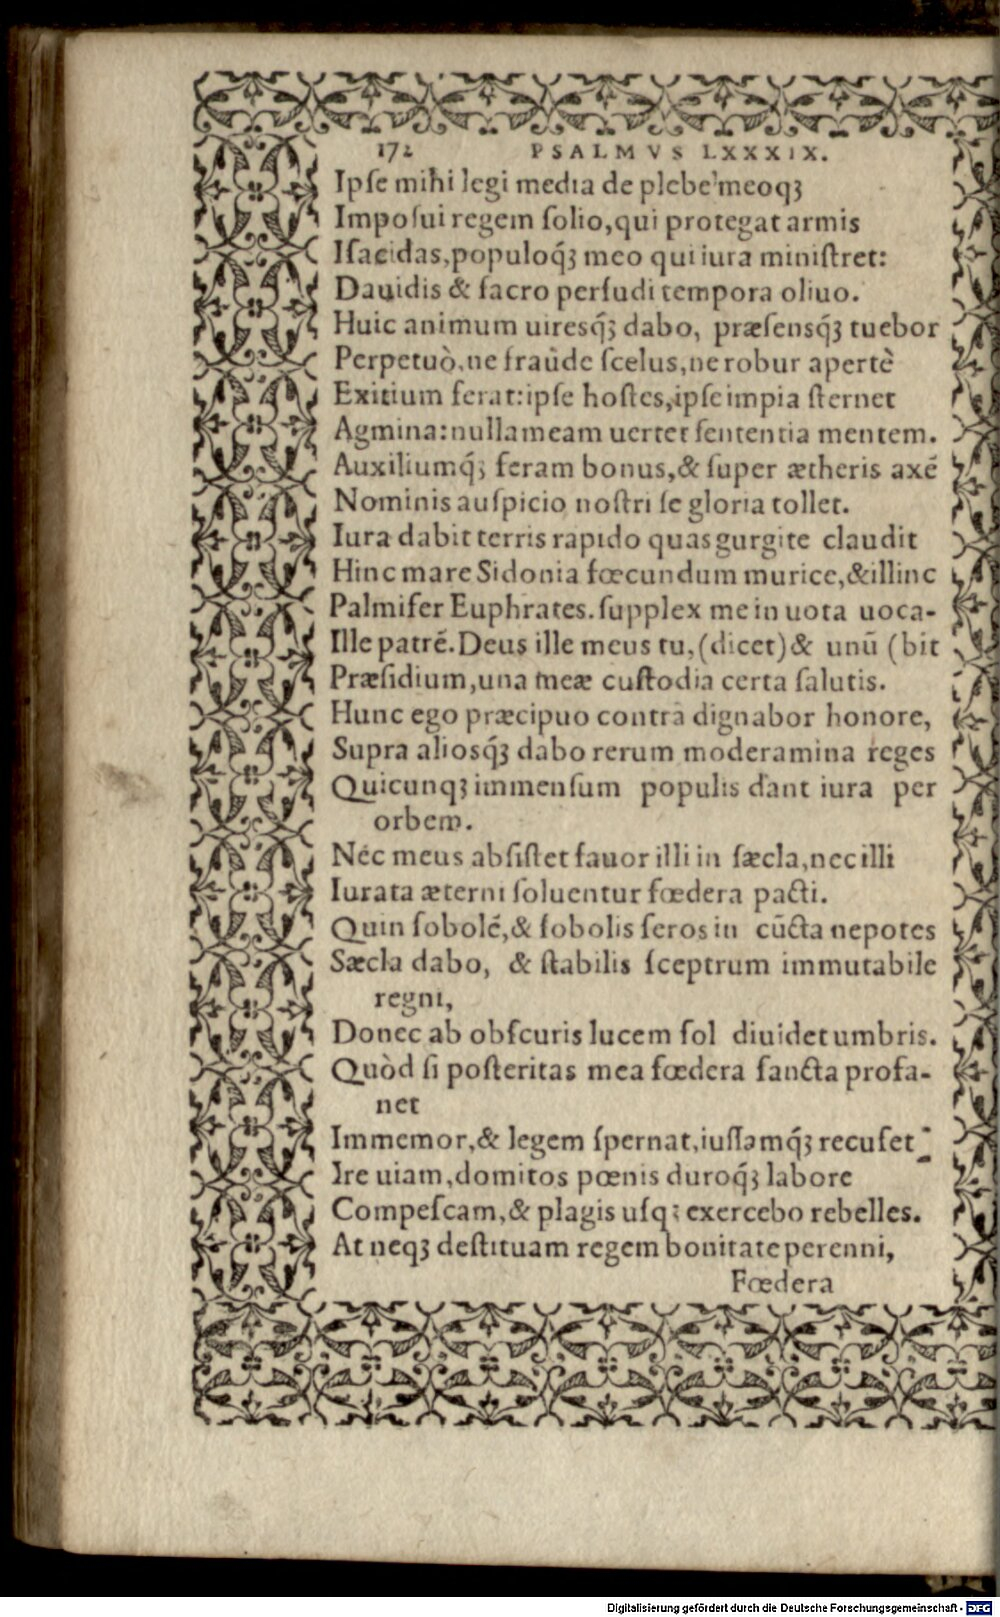 172 PSALMVS LXXXIX.
Ipſe mihi legi media de plebe meoqꝫ
Impoſui regem ſolio, qui protegat armis
Iſacidas, populoq́ꝫ meo qui iura miniſtret:
Dauidis & ſacro perfudi tempora oliuo.
Huic animum uiresq́ꝫ dabo, præſensq́ꝫ tuebor
Perpetuò, ne fraude ſcelus, ne robur apertè
Exitium ferat: ipſe hoſtes, ipſe impia ſternet
Agmina: nulla meam uertet ſententia mentem.
Auxiliumq́ꝫ feram bonus, & ſuper ætheris axē
Nominis auſpicio noſtri ſe gloria tollet.
Iura dabit terris rapido quas gurgite claudit
Hinc mare Sidonia fœcundum murice, & illinc
Palmifer Euphrates. ſupplex me in uota uoca-
Ille patrē. Deus ille meus tu, (dicet) & unū (bit
Præſidium, una meæ cuſtodia certa ſalutis.
Hunc ego præcipuo contrà dignabor honore,
Supra aliosq́ꝫ dabo rerum moderamina reges
Quicunqꝫ immenſum populis dant iura per
orbem.
Nec meus abſiſtet fauor illi in ſæcla, nec illi
Iurata æterni ſoluentur fœdera pacti.
Quin ſobolē, & ſobolis ſeros in cūcta nepotes
Sæcla dabo, & ſtabilis ſceptrum immutabile
regni,
Donec ab obſcuris lucem ſol diuidet umbris.
Quòd ſi poſteritas mea fœdera ſancta profa-
net
Immemor, & legem ſpernat, iuſſamq́ꝫ recuſet
Ire uiam, domitos pœnis duroq́ꝫ labore
Compeſcam, & plagis uſqꝫ exercebo rebelles.
At neqꝫ deſtituam regem bonitate perenni,
Fœdera
Digitalisierung gefördert durch die Deutsche Forschungsgemeinschaft - DFG